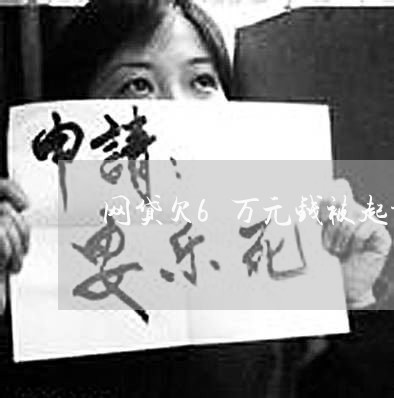 申請：
网贷欠6 万元钱被起
安乐死